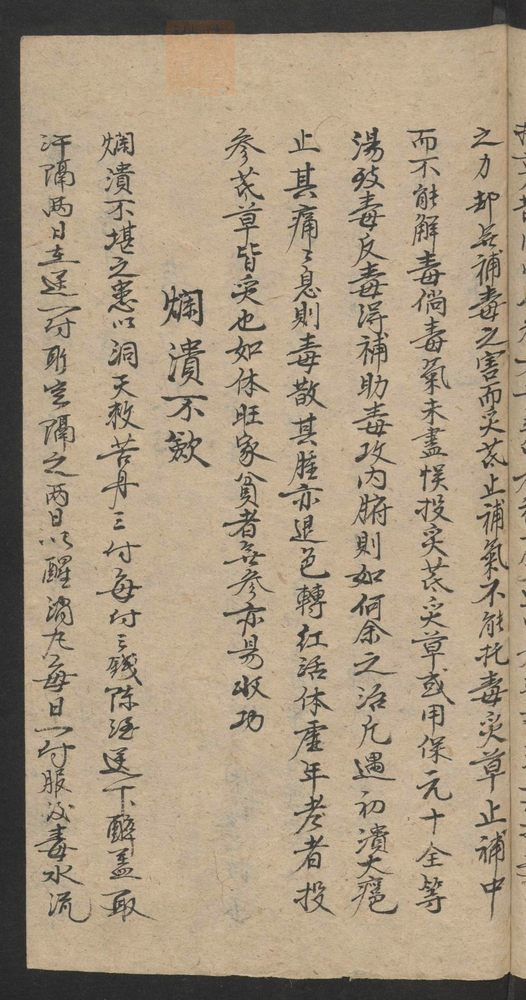 之力却無補毒之害而炙芪止補氣不能托毒炙草止補中
而不能解毒倘毒氣未盡悮投炙芪炙草或用保元十全等
湯致毒反毒得補助毒攻内腑則如何余之治凡遇初潰大疽
止其痛々息則毒散其腫亦退色轉紅活体虛年老者投
參芪草皆炙也如体旺家貧者無參亦易收功
爛潰不斂
爛潰不堪之患以洞天救苦丹三付每付三錢陈酒送下醉盖取
汗隔兩日在送一付所空隔之两日以醒消丸每日一付服後毒水流